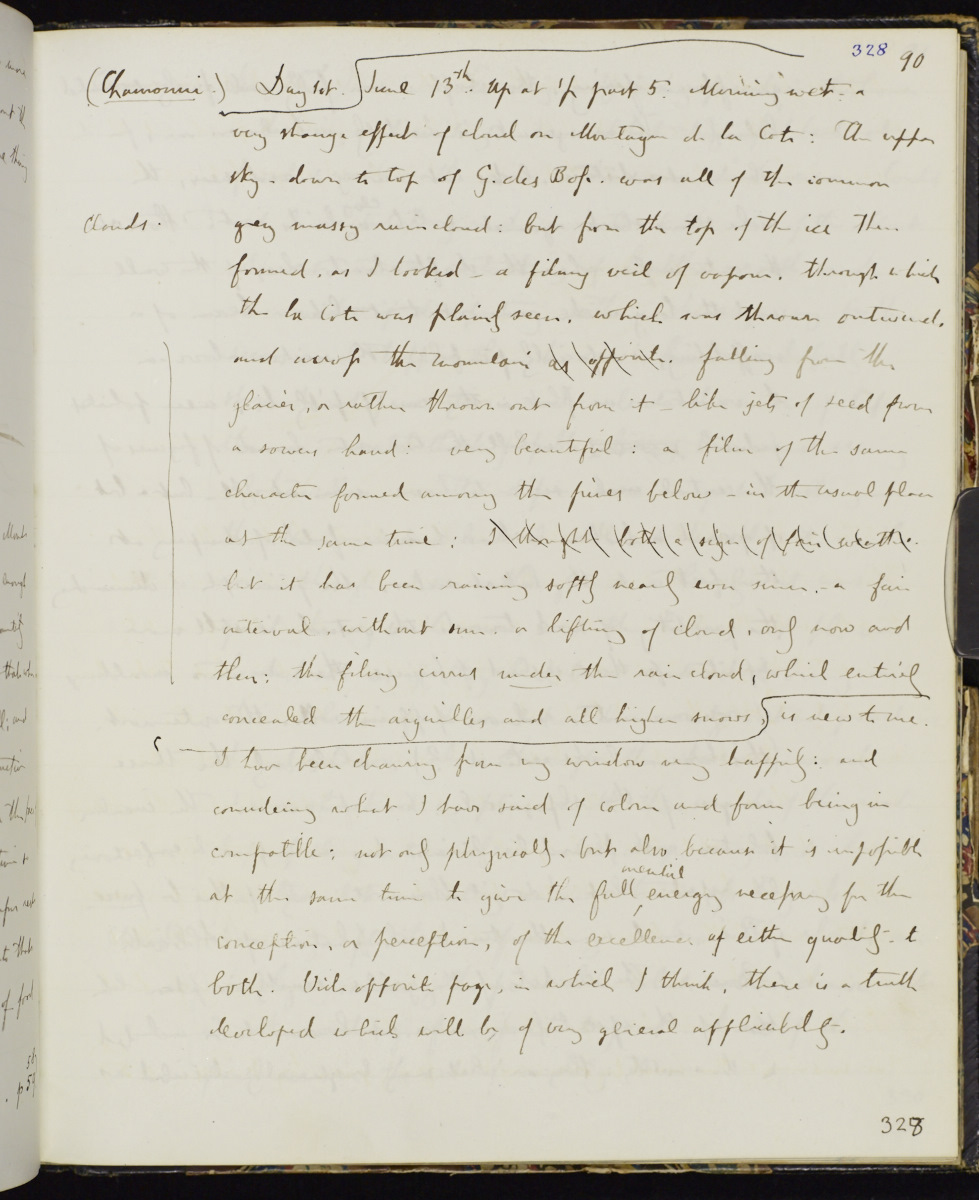 328 90
(Chamouni.) Day 1st. June 13th. Up at 1/2 past 5. Morning wet. a
very strange effect of cloud on Montagne de la Cote: The upper
sky. down to top of G. des Bos. was all of the common
Clouds. grey massy raincloud: but from the top of the ice there
formed, as I looked - a filmy veil of vapour. through which
the la Cote was plainly seen. which was thrown outwards.
and across the mountain as opposite. falling from the
glacier, or rather thrown out from it - like jets of seed from
a sowers hand: very beautiful: a film of the same
character formed among the pines below - in the usual place
at the same time: I thought both a sign of fair weather.
but it has been raining softly nearly ever since. - a fair
interval. without sun. or lifting of cloud, only now and
then: the filmy cirrus under the rain cloud, which entirely
concealed the aiguilles and all higher snows, is new to me.
I have been drawing from my window very happily: and
considering what I have said of colour and form being in
compatible; not only physically. but also because it is impossible
at the same time to give the full mental energy necessary for the
conception, or perception, of the excellence of either quality. to
both. Vide opposite page, in which I think, there is a truth
developed which will be of very general applicability.
328